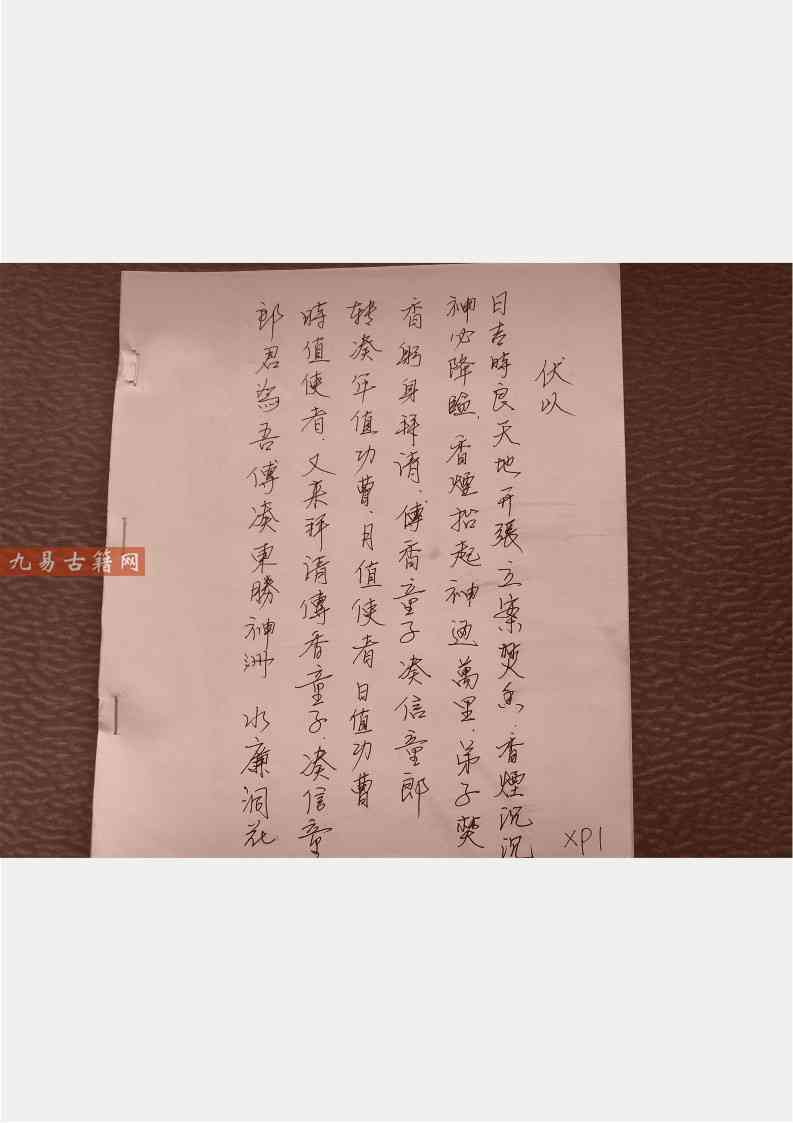 伏以
日吉時良天地开張立案焚香、香煙沉沉
神必降臨、香煙抬起神通萬里、弟子焚
香躬身拜请、傅香童子凑信童郎
转凑年值功曹、月值使者日值功曹
時值使者、又来拜请傳香童子、凑信童
郎君為吾傅凑東勝神洲 水廉洞花
XP1
九易古籍网